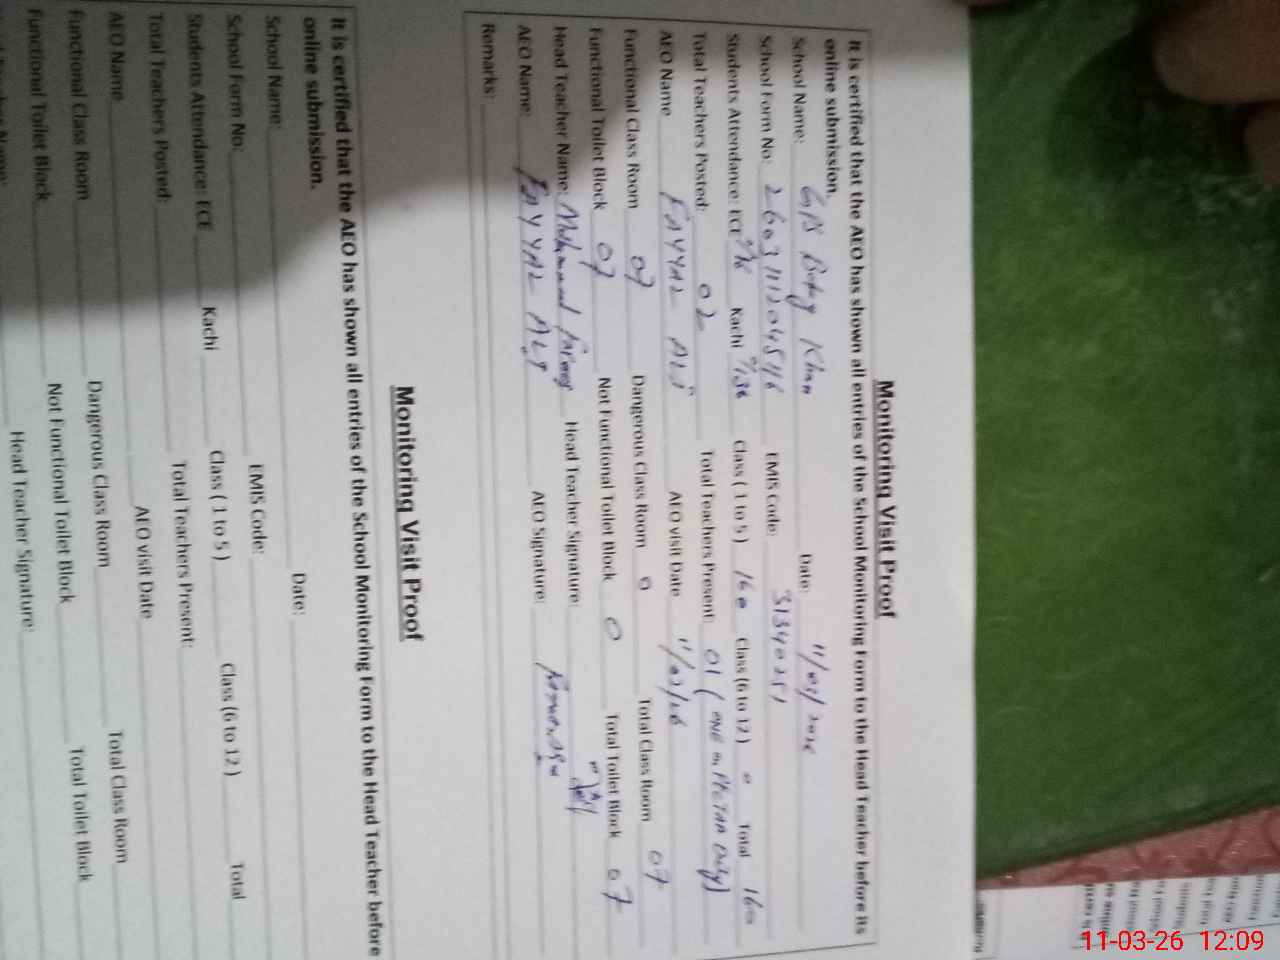 Monitoring Visit Proof
It is certified that the AEO has shown all entries of the School Monitoring Form to the Head Teacher before its
online submission.
School Name: GPS Khan Date: 11/03/2026
School Form No: EMIS Code: 31340251
Students Attendance: ECE Kachi Class ( 1 to 5 ) 160 Class (6 to 12 ) 0 Total 160
Total Teachers Posted: 02 Total Teachers Present: 01 ( ONE on Only)
AEO Name FAYYAZ ALI AEO visit Date 11/03/26
Functional Class Room 07 Dangerous Class Room 0 Total Class Room 07
Functional Toilet Block 07 Not Functional Toilet Block 0 Total Toilet Block 07
Head Teacher Name: Muhammad Head Teacher Signature:
AEO Name: FAYYAZ ALI AEO Signature:
Remarks:
Monitoring Visit Proof
It is certified that the AEO has shown all entries of the School Monitoring Form to the Head Teacher before
online submission.
School Name: Date:
School Form No: EMIS Code:
Students Attendance: ECE Kachi Class ( 1 to 5 ) Class (6 to 12 ) Total
Total Teachers Posted: Total Teachers Present:
AEO Name AEO visit Date
Functional Class Room Dangerous Class Room Total Class Room
Functional Toilet Block Not Functional Toilet Block Total Toilet Block
Head Teacher Signature:
11-03-26 12:09